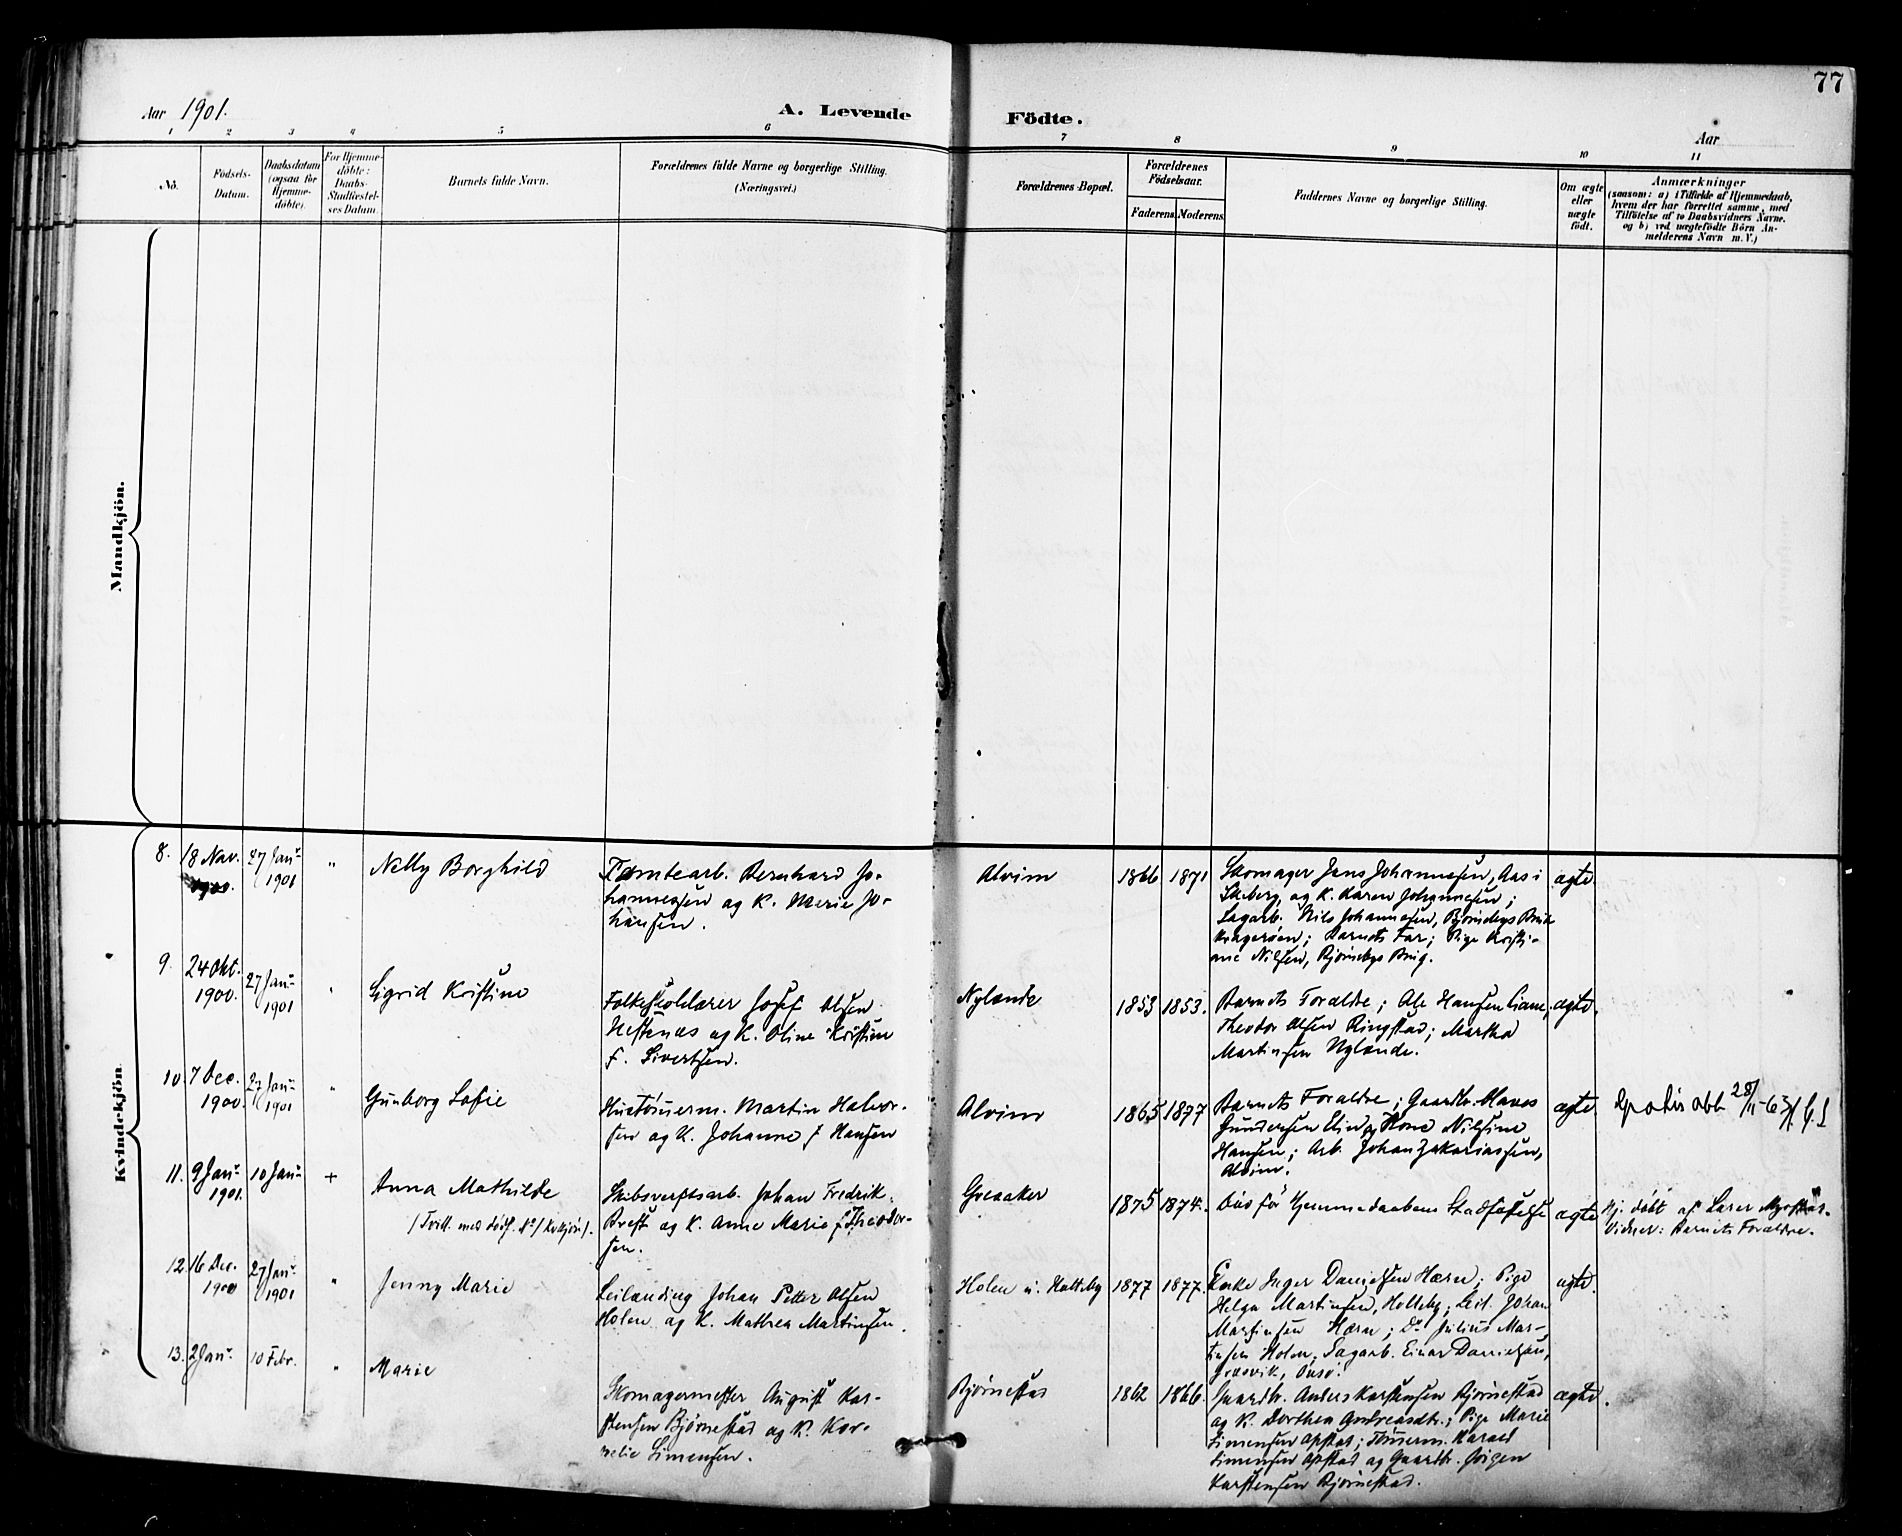 77
Aar 1901. A. Levende Födte. Aar
1 2 3 4 5 6 7 8 9 10 11
No.
Födsels-
Datum.
Daabsdatum
(ogsaa for
Hjemme-
döbte).
For Hjemme-
döbte:
Daabs-
Stadfæstel-
ses Datum.
Barnets fulde Navn.
Forældrenes fulde Navne og borgerlige Stilling.
(Næringsvei.)
Forældrenes Bopæl.
Forældrenes
Födselsaar.
Faderens. Moderens.
Faddernes Navne og borgerlige Stilling.
Om ægte
eller
uægte
födt.
Anmærkninger
(saasom: a) i Tilfælde af Hjemmedaab,
hvem der har forrettet samme, med
Tilföielse af to Daabsvidners Navne.
og b) ved uægtefödte Börn An-
melderens Navn m. V.)
Mandkjön.
Kvindekjön.
8. 18 Nov. 1900. 27 Janr 1901 " Nelly Borghild
Tomtearb. Bernhard Jo-
hannessen og K. Marie Jo-
hansen.
Alvim 1866 1871
Skomager Jens Johannessen, Aas i
Skeberg, og K. Karen Johannesen;
Sagarb. Nils Johannesen, Bjørnebys Brug
Kragerøen; Barnets Far; Pige Kristi-
ane Nilsen, Bjørnebys Brug.
ægte
9. 24 Okt. 1900. 27 Janr 1901 " Sigrid Kristine
Folkeskolelærer Josef Olsen
Hestenæs og K. Oline Kristine
f. Sivertsen.
Nylænde 1853 1853.
Barnets Forældre; Ole Hansen Liane,
Theodor Olsen Ringstad; Martha
Martinsen Nylænde.
ægte.
10. 7 Dec. 1900. 27 Janr 1901 " Gunborg Sofie
Hustømerm. Martin Halvor-
sen og K. Johanne f Hansen
Alvim 1865 1877
Barnets Forældre; Gaardbr. Hans
Gundersen og Kone Nilsine
Hansen; Arb. Johan Zakariassen,
Alvim.
ægte
Gratis att 28/11-63
11. 9 Janr 1901. 10 Janr + Anna Mathilde
(Tvill. med dødf. No 1 Kvkjøn).
Skibsverftsarb. Johan Fredrik
og K. Anne Marie f Theodor-
sen.
Greaaker 1875 1874.
Døds før Hjemmedaabens Stadfæstelse
ægte
Hj. døbt af Lærer
Vidner: Barnets Forældre.
12. 16 Dec. 1900 27 Janr 1901 " Jenny Marie
Leilænding Johan Petter Olsen
Holen og K. Mathea Martinsen.
Holen u. Holleby 1877 1877.
Enke Inger Danielsen Hærn; Pige
Helga Martinsen, Holleby; Leil. Johan
Martinsen Hærn; Do Julius Mar-
tinsen Holen, Sagarb. Einar Danielsen,
ægte.
13. 2 Janr. 10 Febr. " Marie
Skomagermester August Kar-
stensen Bjørnestad og K. Kor-
nelie Simensen.
Bjørnestad 1862 1866.
Gaardbr. Anders Karstensen Bjørnestad
og K. Dorthea Andreasdtr.; Pige Marie
Simensen Opstad; Tømerm. Harald
Simensen Opstad og Gaardbr. Jørgen
Karstensen Bjørnestad.
ægte.